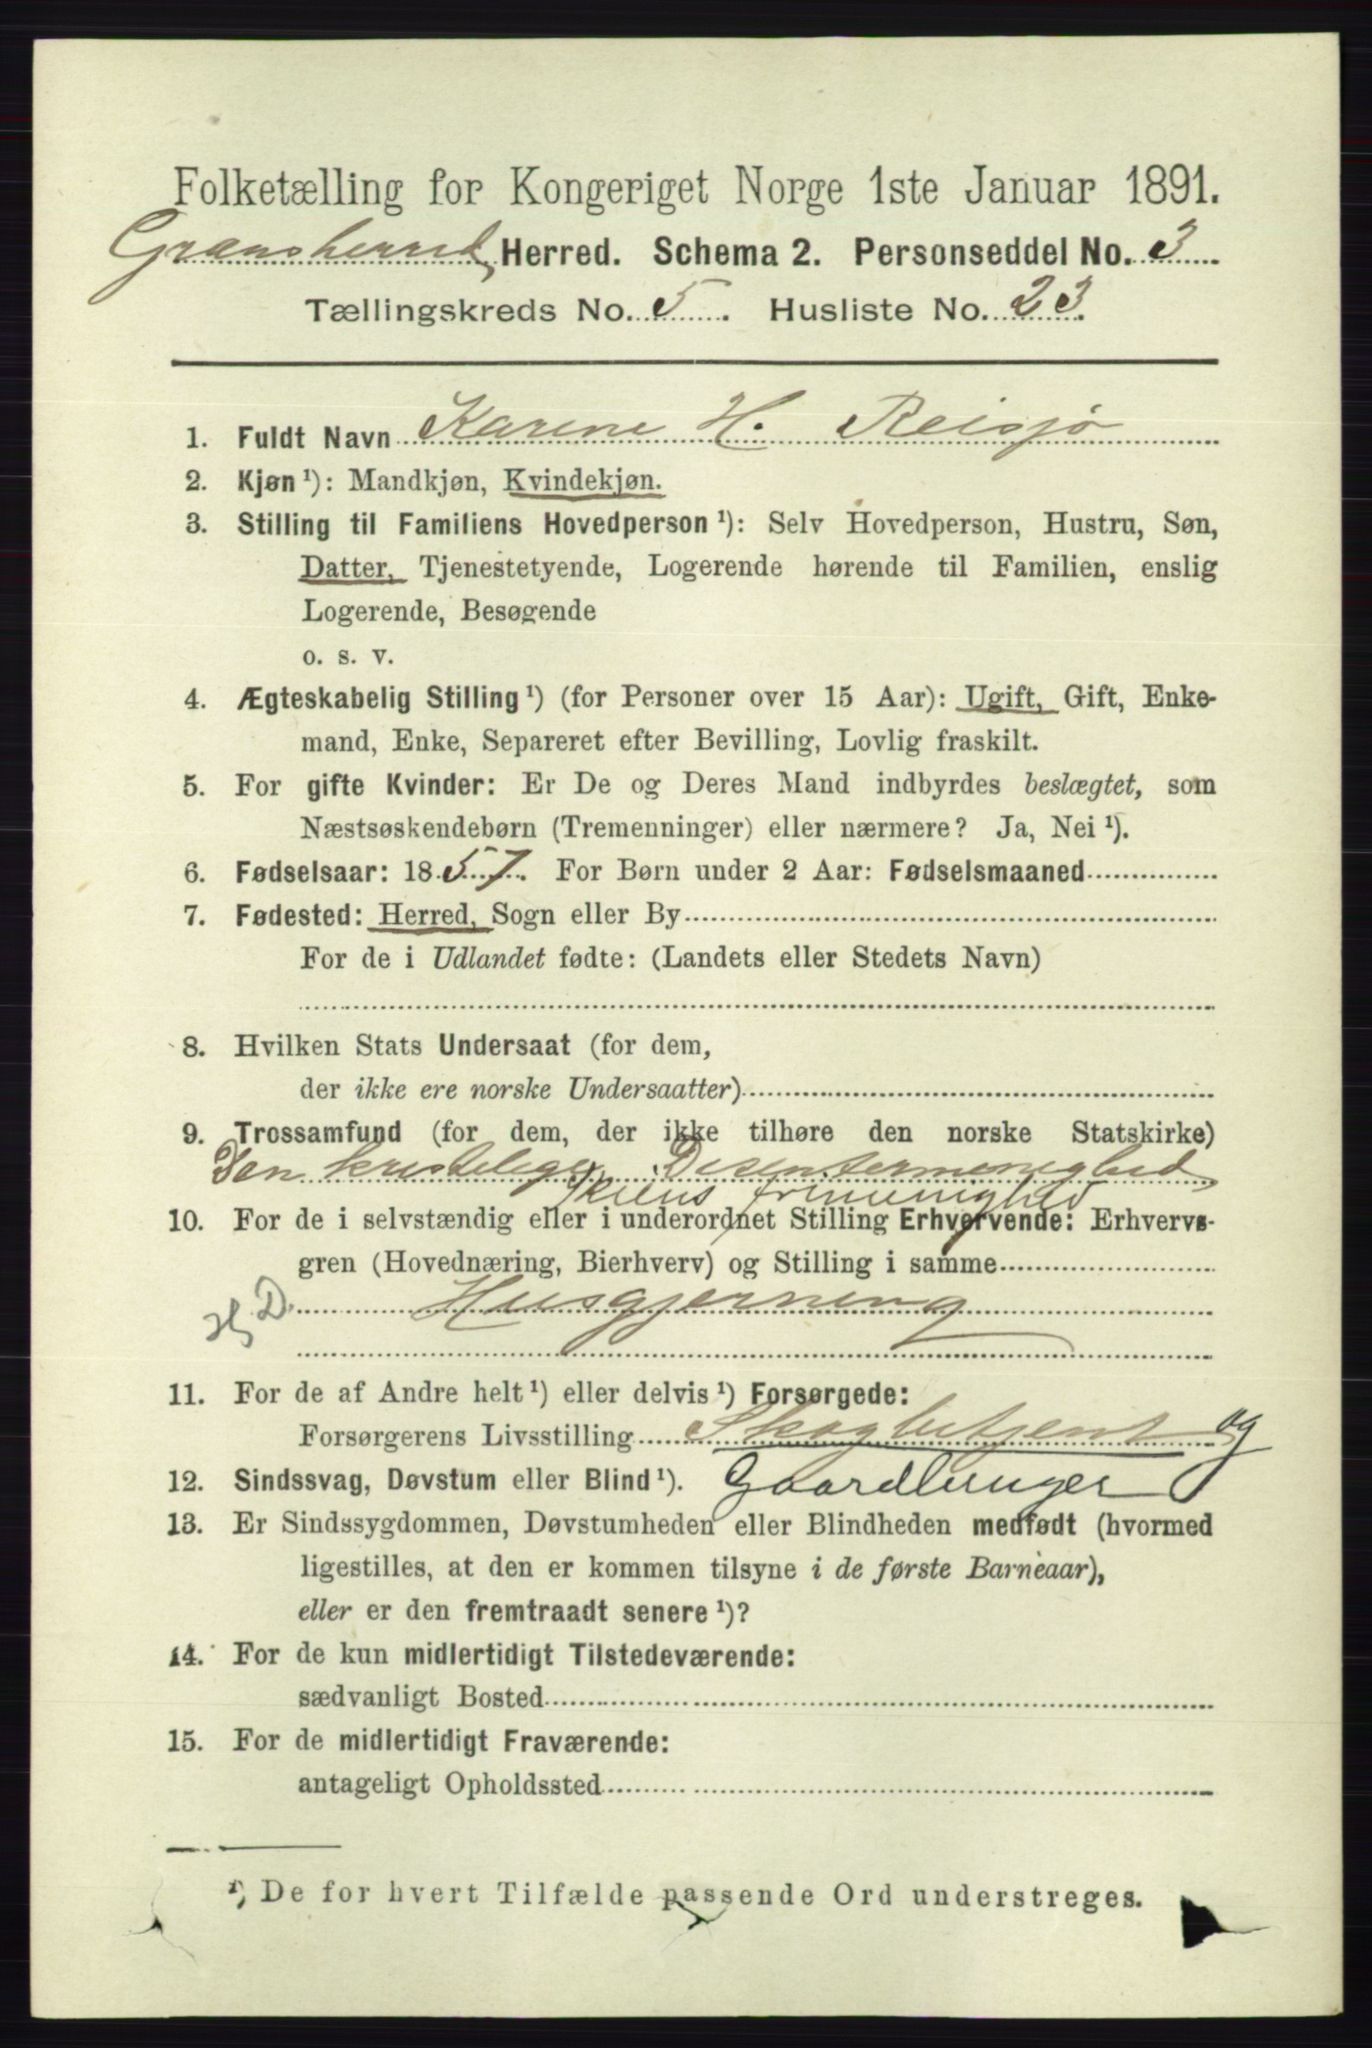 Folketælling for Kongeriget Norge 1ste Januar 1891.
Gransherred, Herred. Schema 2. Personseddel No. 3
Tællingskreds No. 5. Husliste No. 23.
1. Fuldt Navn Karine H. Reisjø
2. Kjøn ¹): Mandkjøn, Kvindekjøn.
3. Stilling til Familiens Hovedperson ¹): Selv Hovedperson, Hustru, Søn,
Datter, Tjenestetyende, Logerende hørende til Familien, enslig
Logerende, Besøgende
o. s. v.
4. Ægteskabelig Stilling ¹) (for Personer over 15 Aar): Ugift, Gift, Enke-
mand, Enke, Separeret efter Bevilling, Lovlig fraskilt.
5. For gifte Kvinder: Er De og Deres Mand indbyrdes beslægtet, som
Næstsøskendebørn (Tremenninger) eller nærmere? Ja, Nei ¹).
6. Fødselsaar: 1857. For Børn under 2 Aar: Fødselsmaaned
7. Fødested: Herred, Sogn eller By
For de i Udlandet fødte: (Landets eller Stedets Navn)
8. Hvilken Stats Undersaat (for dem,
der ikke ere norske Undersaatter)
9. Trossamfund (for dem, der ikke tilhøre den norske Statskirke)
Den kristelige Disentermenighed
Skiens frimenighed
10. For de i selvstændig eller i underordnet Stilling Erhvervende: Erhvervs-
gren (Hovednæring, Bierhverv) og Stilling i samme
Hj D. Husgjerning
11. For de af Andre helt ¹) eller delvis ¹) Forsørgede:
Forsørgerens Livsstilling Skogbetjent og
12. Sindssvag, Døvstum eller Blind ¹). Gaardbruger
13. Er Sindssygdommen, Døvstumheden eller Blindheden medfødt (hvormed
ligestilles, at den er kommen tilsyne i de første Barneaar),
eller er den fremtraadt senere ¹)?
14. For de kun midlertidigt Tilstedeværende:
sædvanligt Bosted
15. For de midlertidigt Fraværende:
antageligt Opholdssted
¹) De for hvert Tilfælde passende Ord understreges.